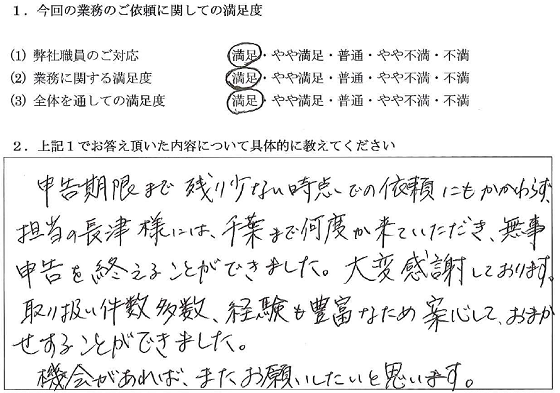 １．今回の業務のご依頼に関しての満足度
(1) 弊社職員のご対応　満足・やや満足・普通・やや不満・不満
(2) 業務に関する満足度　満足・やや満足・普通・やや不満・不満
(3) 全体を通しての満足度　満足・やや満足・普通・やや不満・不満
２．上記１でお答え頂いた内容について具体的に教えてください
申告期限まで残り少ない時点での依頼にもかかわらず、
担当の長津様には、千葉まで何度か来ていただき、無事
申告を終えることができました。大変感謝しております。
取り扱い件数多数、経験も豊富なため安心して、おまか
せすることができました。
機会があれば、またお願いしたいと思います。